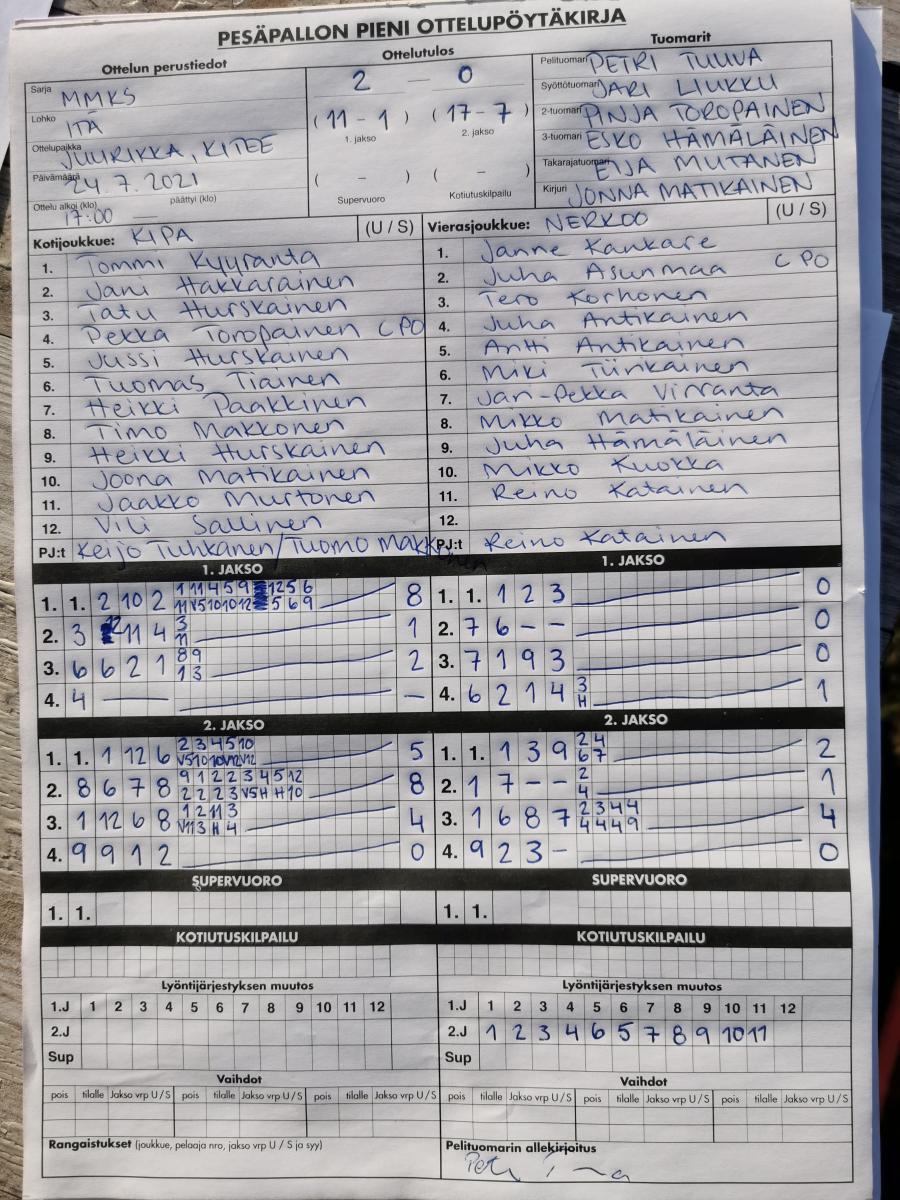 PESÄPALLON PIENI OTTELUPÖYTÄKIRJA
Ottelun perustiedot
Sarja MMKS
Lohko ITÄ
Ottelupaikka JUURIKKA, KITEE
Päivämäärä 24.7.2021
Ottelu alkoi (klo) 17:00 päättyi (klo) —
Ottelutulos
2 — 0
(11 - 1) (17 - 7)
1. jakso 2. jakso
( - ) ( - )
Supervuoro Kotiutuskilpailu
Tuomarit
Pelituomari PETRI TUUVA
Syöttötuomari JARI LIUKKU
2-tuomari PINJA TOROPAINEN
3-tuomari ESKO HÄMÄLÄINEN
Takarajatuomari EIJA MUTANEN
Kirjuri JONNA MATIKAINEN
Kotijoukkue: KIPA (U / S)
1. Tommi Kyyranta
2. Jani Hakkarainen
3. Tatu Hurskainen
4. Pekka Toropainen CPO
5. Jussi Hurskainen
6. Tuomas Tiainen
7. Heikki Paakkinen
8. Timo Makkonen
9. Heikki Hurskainen
10. Joona Matikainen
11. Jaakko Murtonen
12. Vili Sallinen
PJ:t Keijo Tuhkanen/Tuomo Makkonen
Vierasjoukkue: NERKOO (U / S)
1. Janne Kankare
2. Juha Asunmaa CPO
3. Tero Korhonen
4. Juha Antikainen
5. Antti Antikainen
6. Miki Tiirikainen
7. Jari-Pekka Virranta
8. Mikko Matikainen
9. Juha Hämäläinen
10. Mikko Kuokka
11. Reino Katainen
12.
PJ:t Reino Katainen
1. JAKSO
1. 1. 2 10 2 1 11 4 5 9 12 5 6 8
11 V5 10 10 12 5 6 9
2. 3 12 11 4 3 1
11
3. 6 6 2 1 8 9 2
1 3
4. 4 — —
1. JAKSO
1. 1. 1 2 3 0
2. 7 6 - - 0
3. 7 1 9 3 0
4. 6 2 1 4 3 1
H
2. JAKSO
1. 1. 1 12 6 2 3 4 5 10 5
V5 10 10 V12 V12
2. 8 6 7 8 9 1 2 2 3 4 5 12 8
2 2 2 3 V5 H H 10
3. 1 12 6 8 1 2 11 3 4
V11 3 H 4
4. 9 9 1 2 0
2. JAKSO
1. 1. 1 3 9 2 4 2
6 7
2. 1 7 - - 2 1
4
3. 1 6 8 7 2 3 4 4 4
4 4 4 9
4. 9 2 3 - 0
SUPERVUORO
1. 1.
SUPERVUORO
1. 1.
KOTIUTUSKILPAILU
KOTIUTUSKILPAILU
Lyöntijärjestyksen muutos
1.J 1 2 3 4 5 6 7 8 9 10 11 12
2.J
Sup
Lyöntijärjestyksen muutos
1.J 1 2 3 4 5 6 7 8 9 10 11 12
2.J 1 2 3 4 6 5 7 8 9 10 11
Sup
Vaihdot
pois tilalle Jakso vrp U / S pois tilalle Jakso vrp U / S pois tilalle Jakso vrp U / S
Vaihdot
pois tilalle Jakso vrp U / S pois tilalle Jakso vrp U / S pois tilalle Jakso vrp U / S
Rangaistukset (joukkue, pelaaja nro, jakso vrp U / S ja syy)
Pelituomarin allekirjoitus